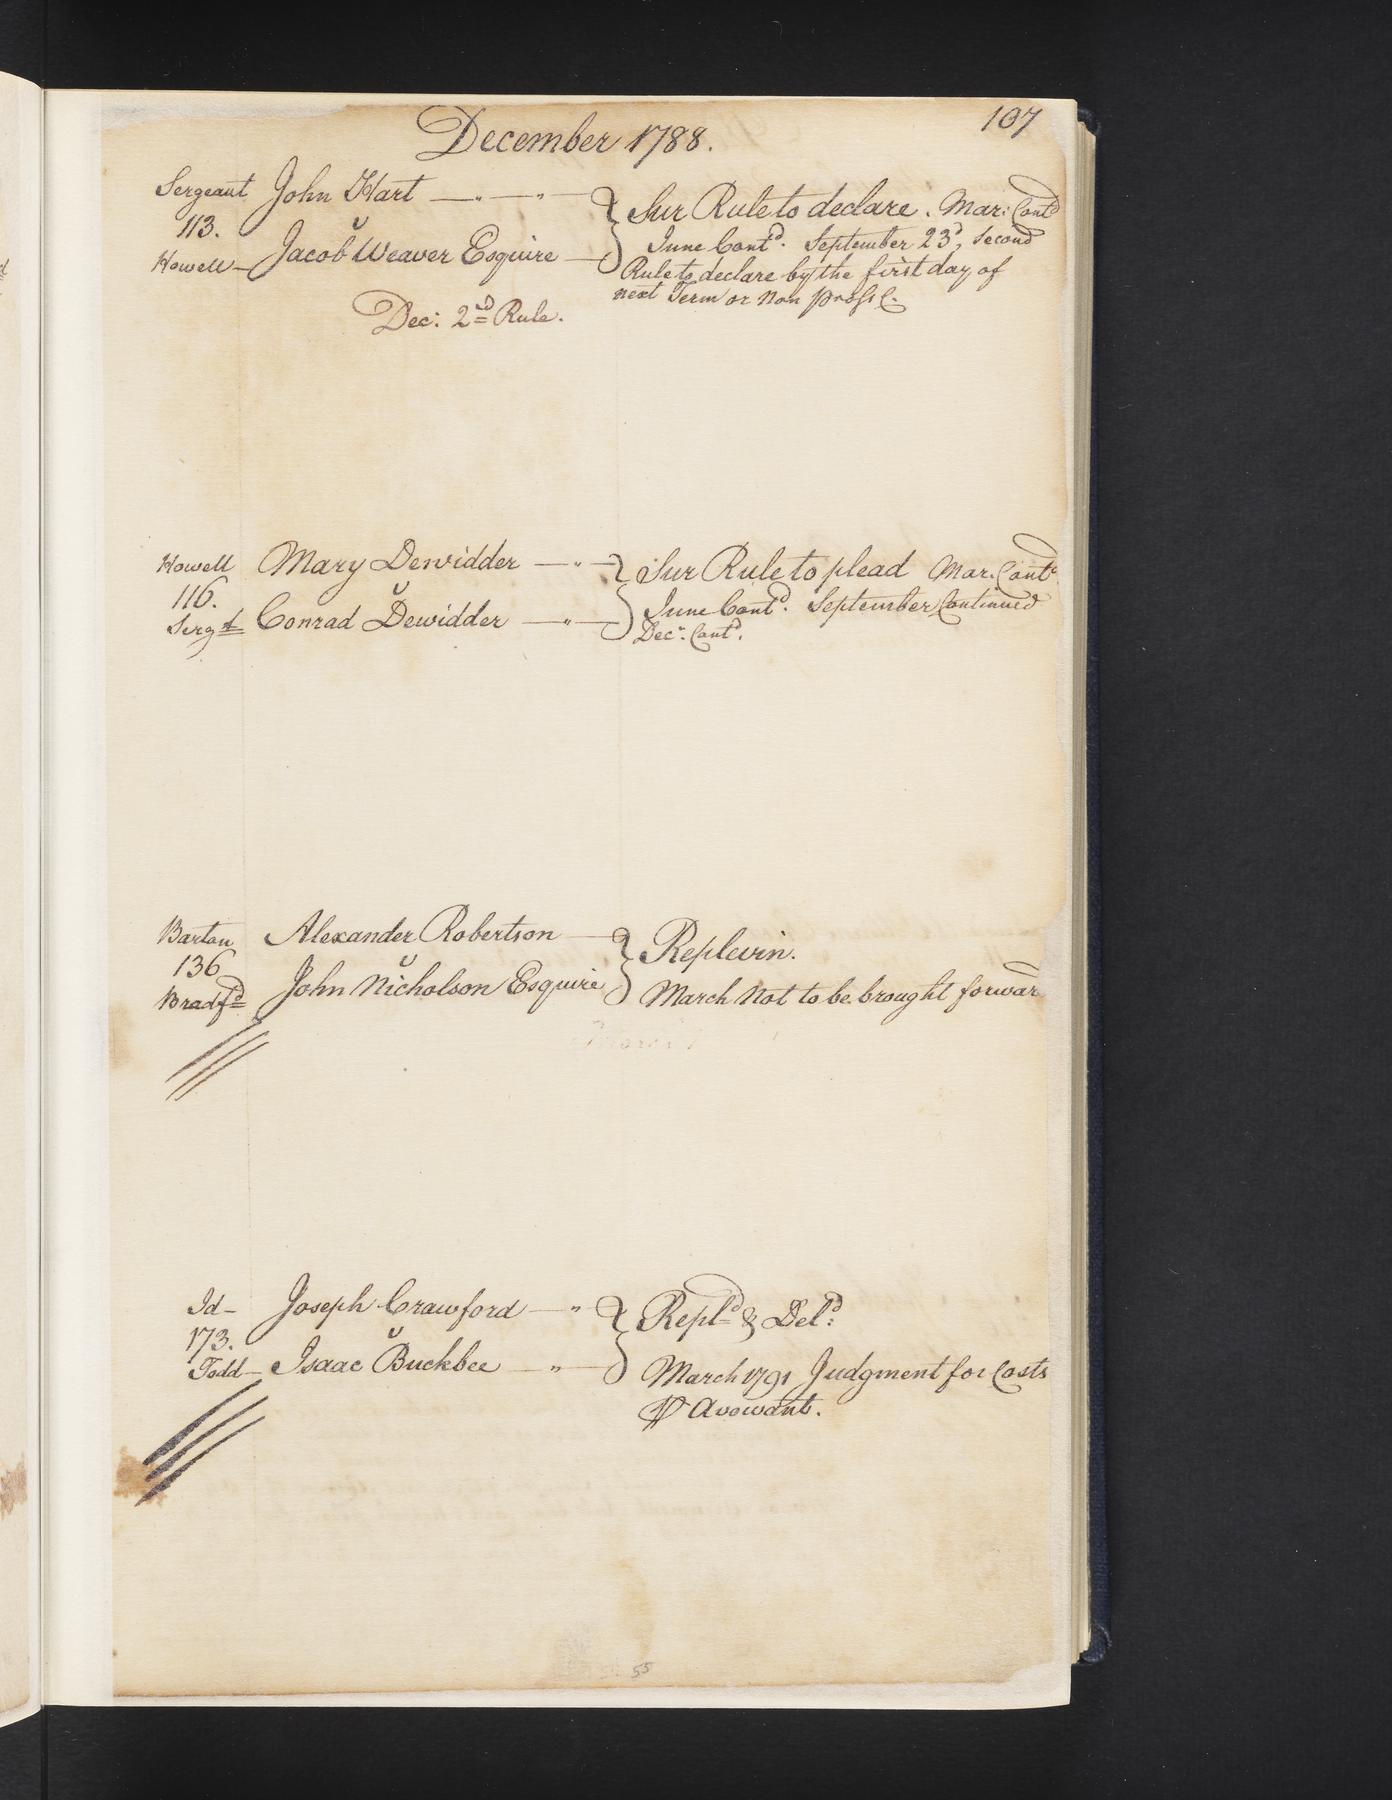 107
December 1788.
Sergeant John Hart — " — " — } Sur Rule to declare. Mar: Contd
113. v June Contd. September 23d, second
Howell — Jacob Weaver Esquire — Rule to declare by the first day of
next Term or Non pross
Dec: 2nd Rule.
Howell Mary Dewidder — " — } Sur Rule to plead Mar. Contd
116. v June Contd. September Continued
Sergt Conrad Dewidder — " — Decr. Contd.
Barton Alexander Robertson — } Replevin.
136 v
Bradfd John Nicholson Esquire March Not to be brought forward
Id— Joseph Crawford — " } Repld & Deld:
173. v
Todd— Isaac Buckbee — " — March 1791 Judgment for Costs
℔ Avowant.
55